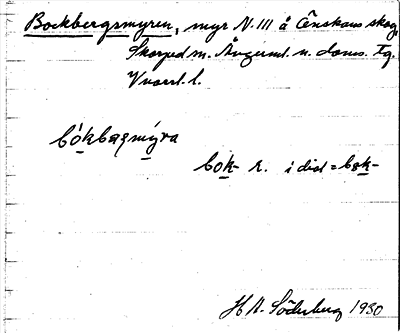 Bockbergsmyren, myr N. III å Önskans skog,
Skorped sn. Ångerml. n. doms. tg.
Vnorrl. l.
bókbærmýra
bok- r. i dial = bok-
H A. Söderberg 1930